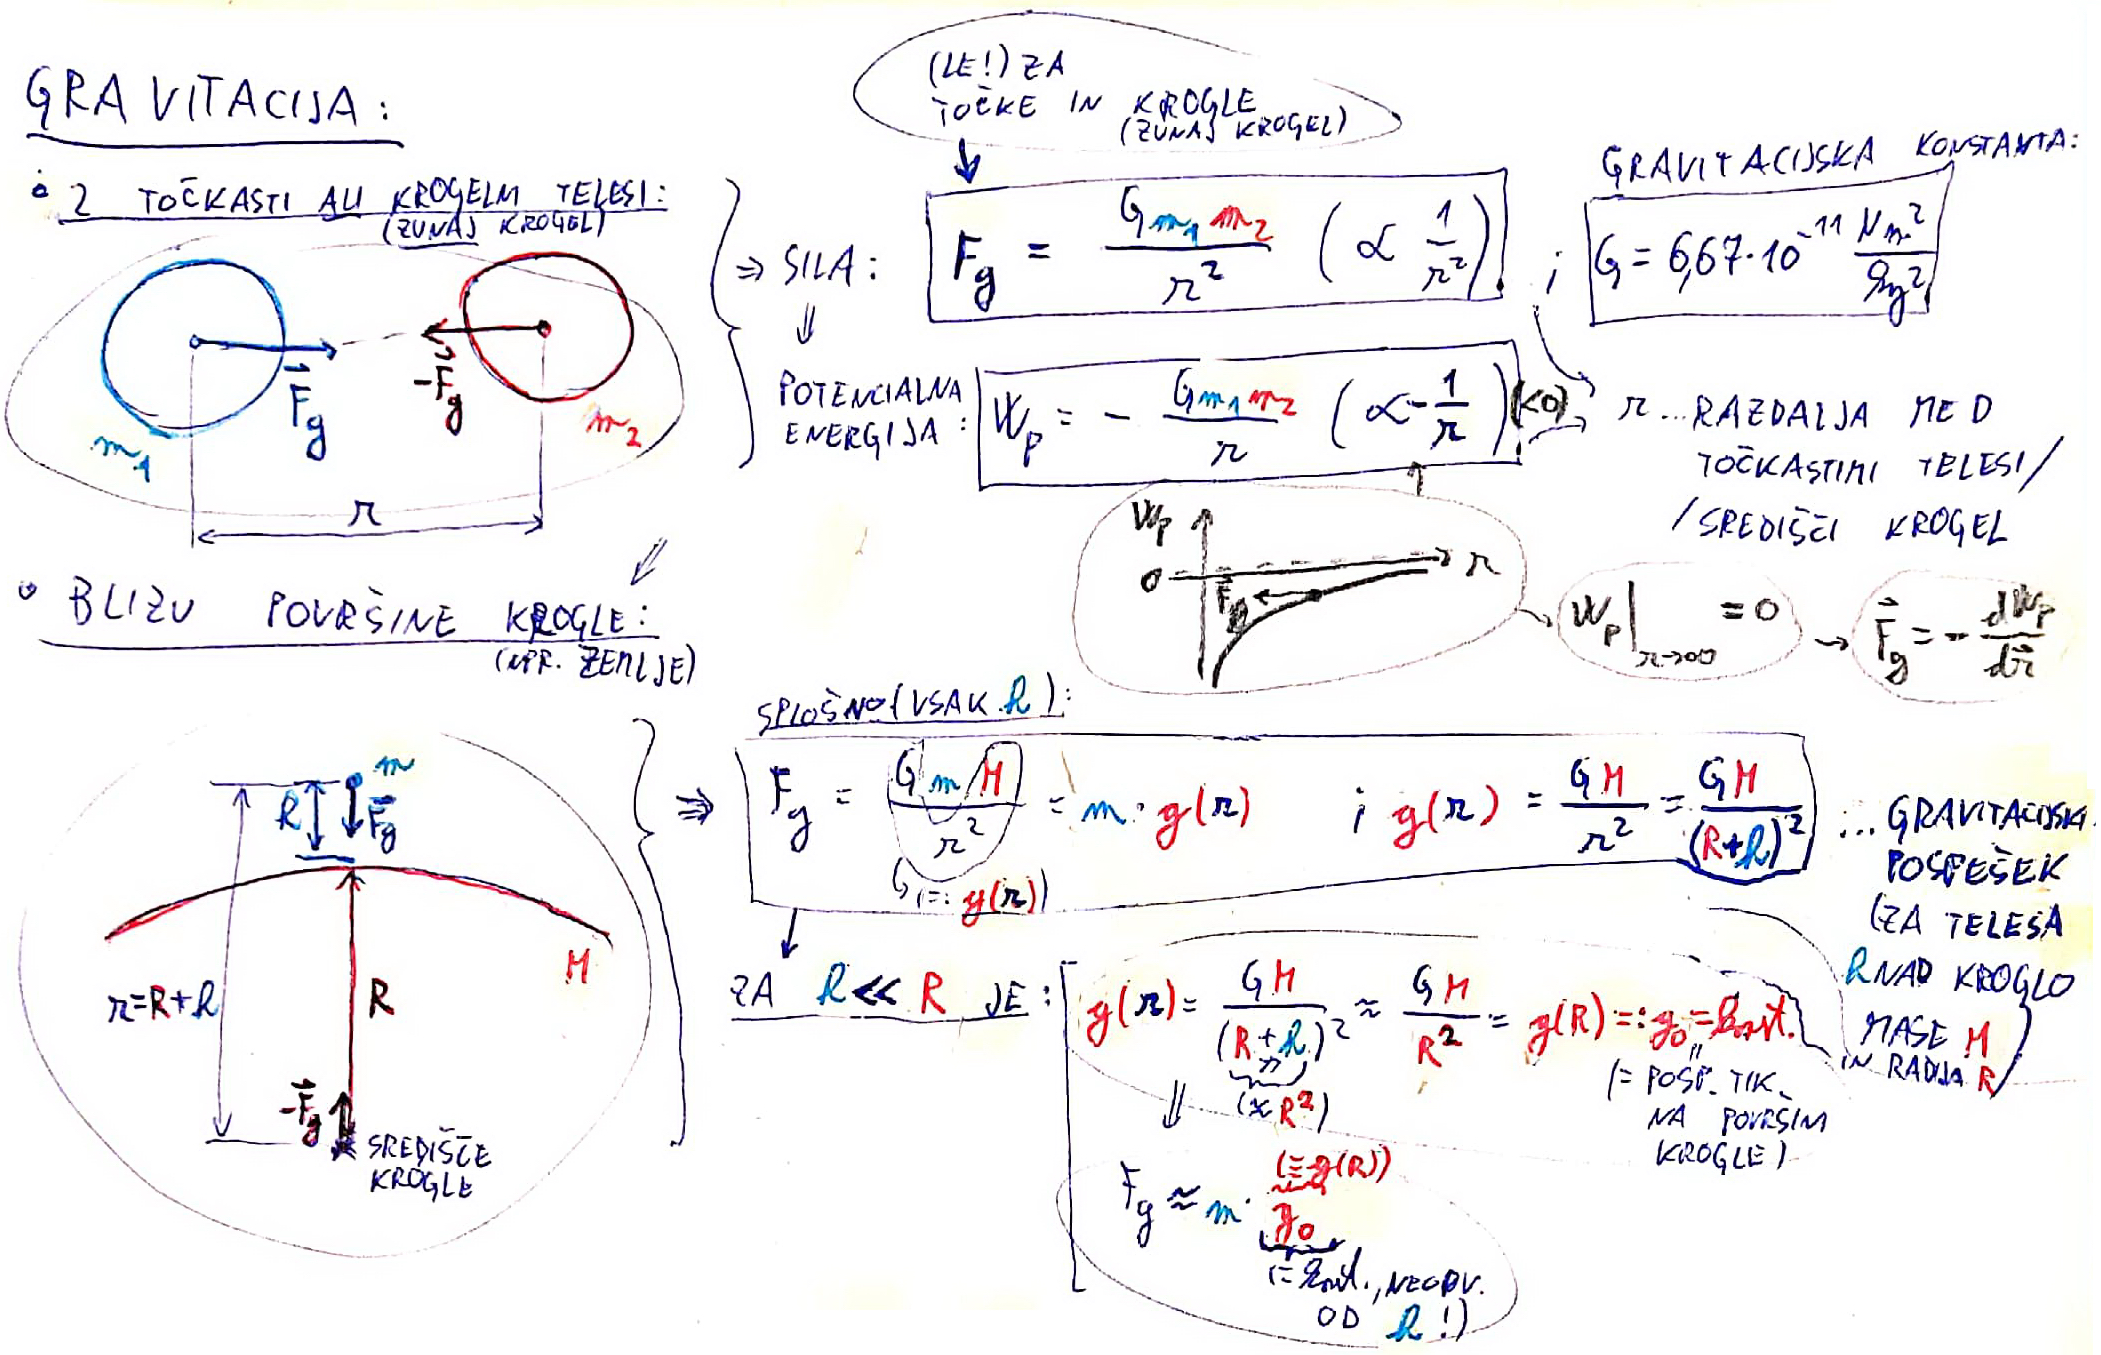 GRAVITACIJA:
(LE!) ZA
TOČKE IN KROGLE
(ZUNAJ KROGEL)
• 2 TOČKASTI ALI KROGELNI TELESI:
(ZUNAJ KROGEL)
m₁
F⃗g
-F⃗g
m₂
r
⇒ SILA:
Fg = Gm₁m₂/r² (∝ 1/r²) ;
GRAVITACIJSKA KONSTANTA:
G = 6,67·10⁻¹¹ Nm²/kg²
⇓
POTENCIALNA
ENERGIJA:
Wp = - Gm₁m₂/r (∝ -1/r) (<0)
r ... RAZDALJA MED
TOČKASTIMI TELESI/
/SREDIŠČI KROGEL
Wp
0
r
F⃗g
Wp|r→∞ = 0
→ F⃗g = - dWp/dr⃗
• BLIZU POVRŠINE KROGLE:
(NPR. ZEMLJE)
m
h
F⃗g
M
r=R+h
R
-F⃗g
SREDIŠČE
KROGLE
SPLOŠNO (VSAK h):
⇒ Fg = GmM/r² = m·g(r) ; g(r) = GM/r² = GM/(R+h)²
(=: g(r))
... GRAVITACIJSKI
POSPEŠEK
(ZA TELESA
h NAD KROGLO
MASE M
IN RADIJA R)
ZA h << R JE:
g(r) = GM/(R+h)² ≈ GM/R² = g(R) =: g₀ = konst.
(≈ R²)
(= POSP. TIK
NA POVRŠINI
KROGLE)
⇓
(≡ g(R))
Fg ≈ m·g₀
(= konst., NEODV.
OD h!)